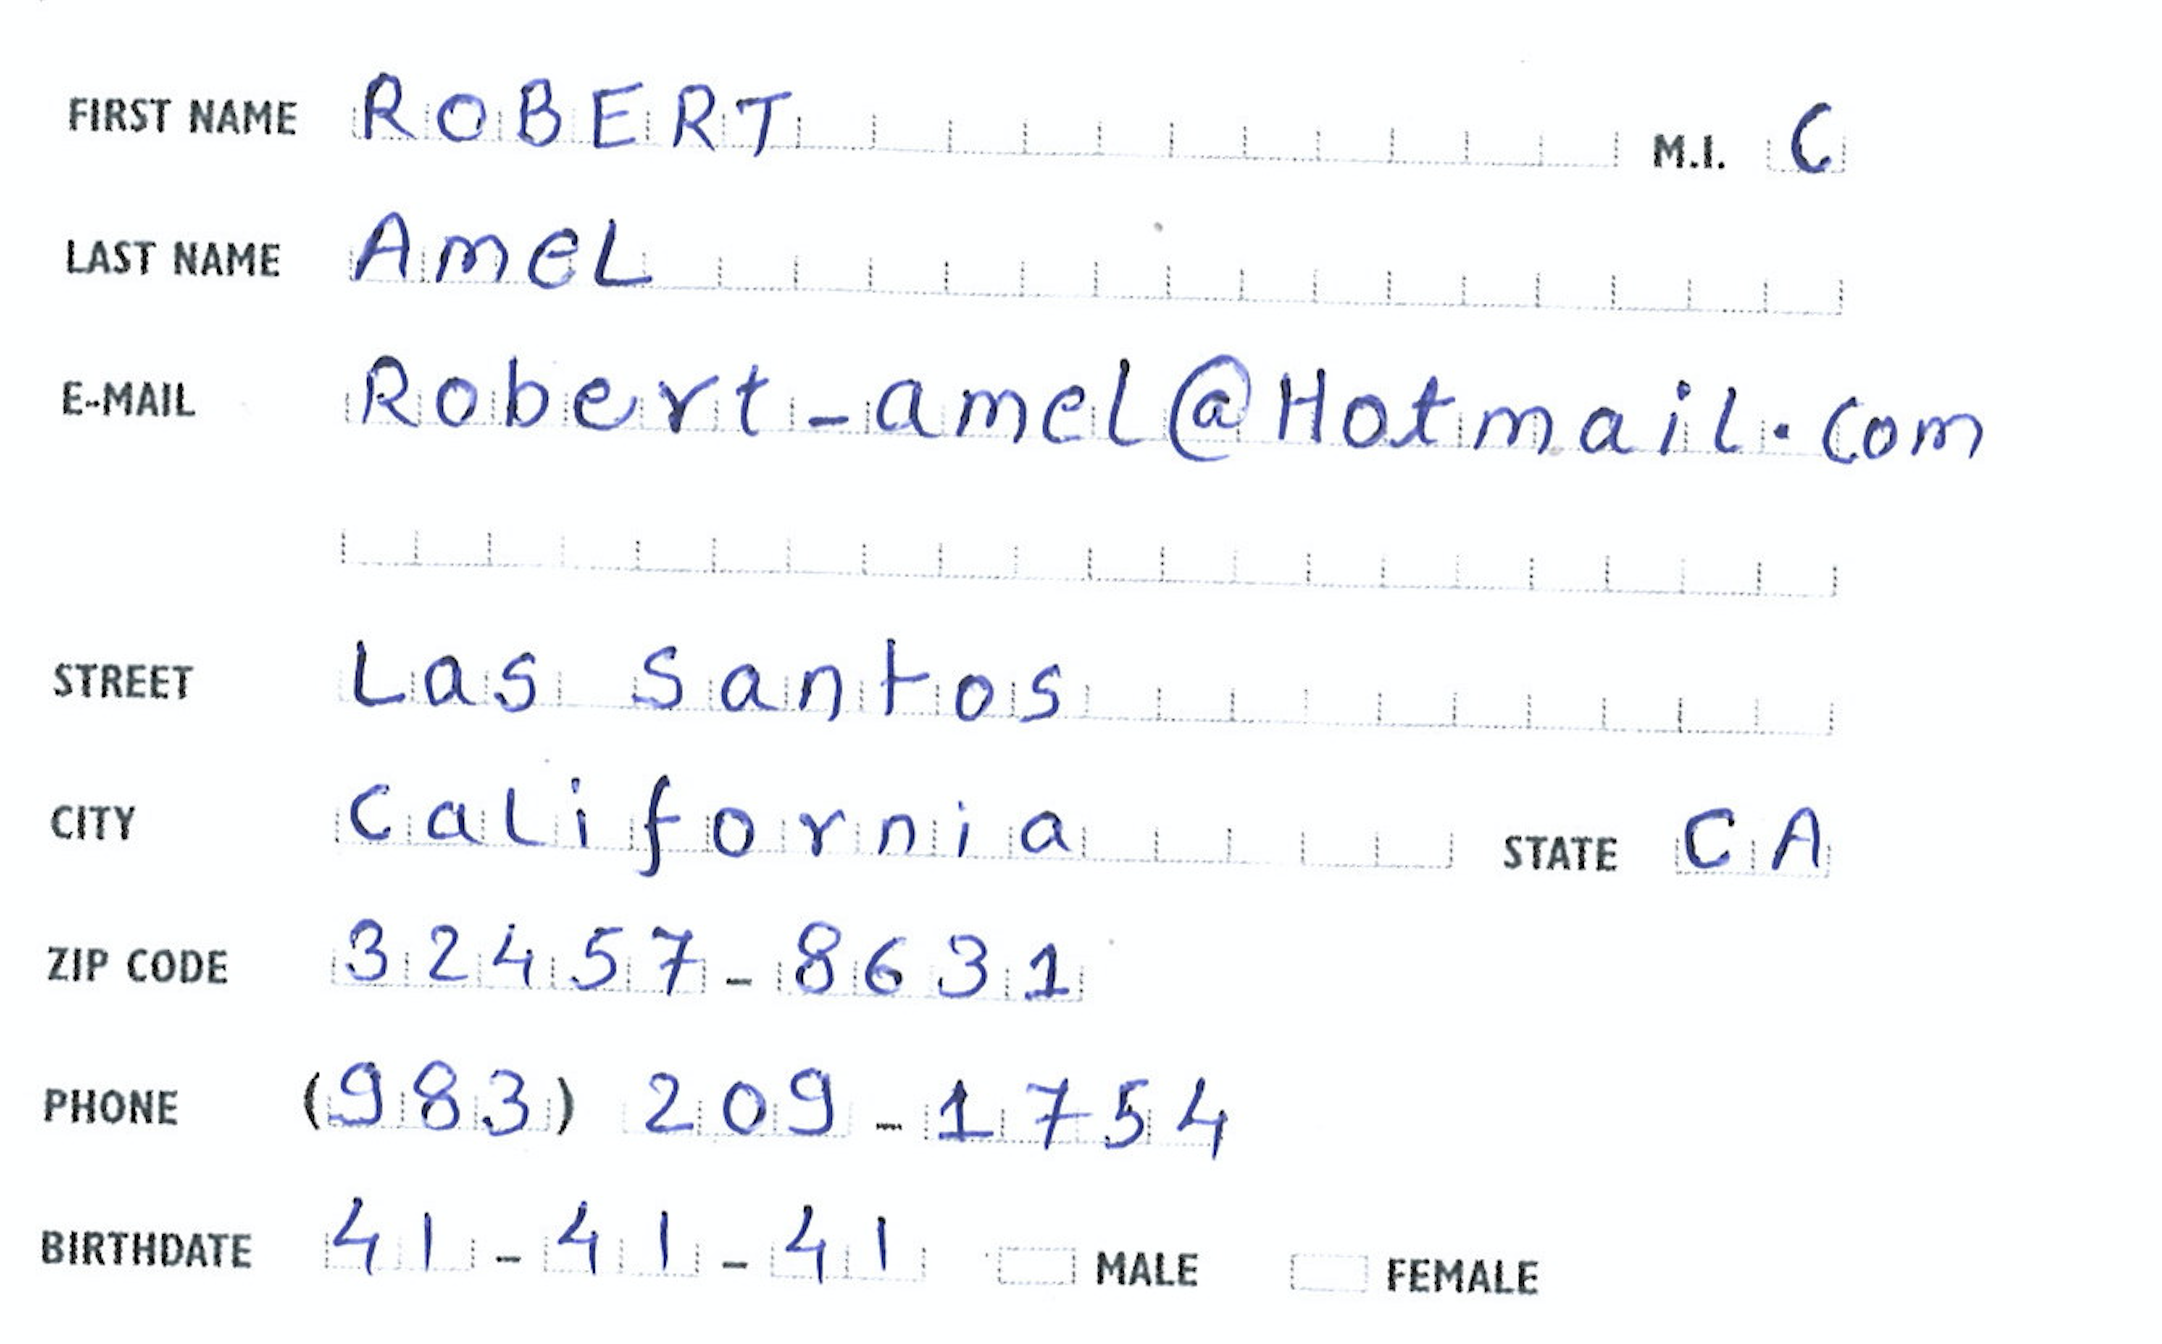 FIRST NAME ROBERT M.I. C
LAST NAME AmeL
E-MAIL Robert-amel@Hotmail.com
STREET Las Santos
CITY California STATE CA
ZIP CODE 32457-8631
PHONE (983) 209-1754
BIRTHDATE 41-41-41 MALE FEMALE